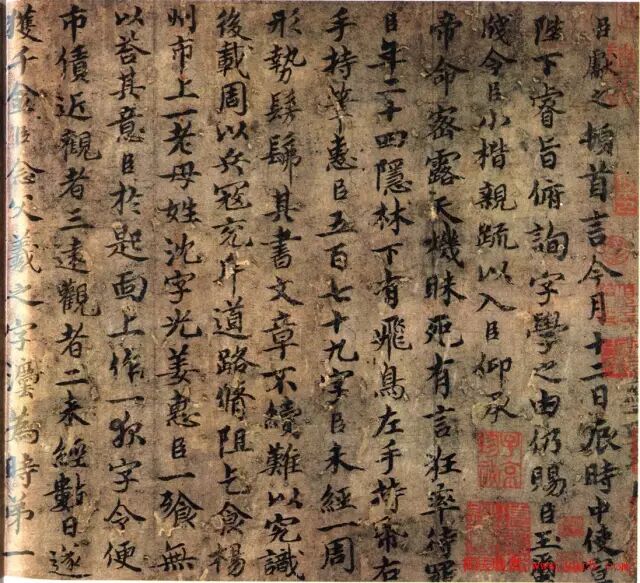 臣獻之頓首言今月十二日辰時中使
陛下睿旨俯詢字學之由仍賜臣玉
牋令臣小楷親疏以入臣仰承
帝命密露天機昧死有言狂率待罪
臣年二十四隱林下有飛鳥左手持帋右
手持筆惠臣五百七十九字臣未經一周
形勢髣髴其書文章不續難以究識
後載周以兵寇充斥道路脩阻乞食楊
州市上一老母姓沈字光姜惠臣一飱無
以荅其意臣於匙面上作一夜字令便
市債近觀者三遠觀者二未經數日遂
獲千金臣念父羲之字灋為時第一